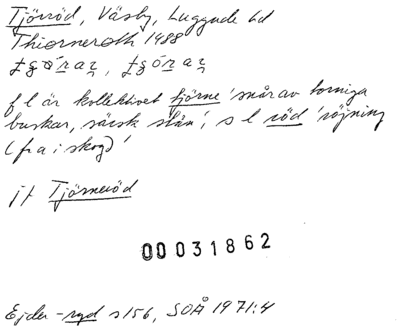 Tjörröd, Väsby, Luggude hd
Thiorneroth 1488
f l är kollektivet tjörne 'snår av torniga
buskar, särsk slån', s l röd 'röjning
(fra i skog)'
jf Tjörneröd
00031862
Ejder -ryd s 156, SOÅ 1971:4